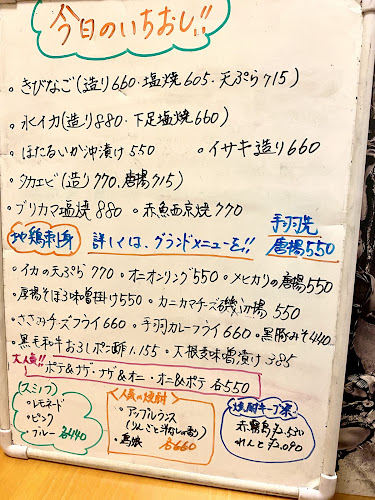 今日のいちおし!!
・きびなご(造り660・塩焼605・天ぷら715)
・水イカ(造り880・下足塩焼660)
・ほたるいか沖漬け550 ・イサキ造り660
・タカエビ(造り770、唐揚715)
・ブリカマ塩焼880 ・赤魚西京焼770
地鶏刺身 詳しくは、グランドメニューを!!
手羽先
唐揚550
・イカの天ぷら770 ・オニオンリング550 ・メヒカリの唐揚550
・厚揚そぼろ味噌掛け550 ・カニカマチーズ磯辺揚550
・ささみチーズフライ660 ・手羽カレーフライ660 ・黒豚みそ440
・黒毛和牛おろしポン酢1.155 ・大根麦味噌漬け385
大人気!!
ポテ&ナゲ・ナゲ&オニ・オニ&ポテ 各550
<スミノフ>
・レモネード
・ピンク
・ブルー 各440
<人気の焼酎>
・アップルランス
(りんごと洋なしの香り)
各660
焼酎キープ祭
赤霧島
れんと ¥2.090